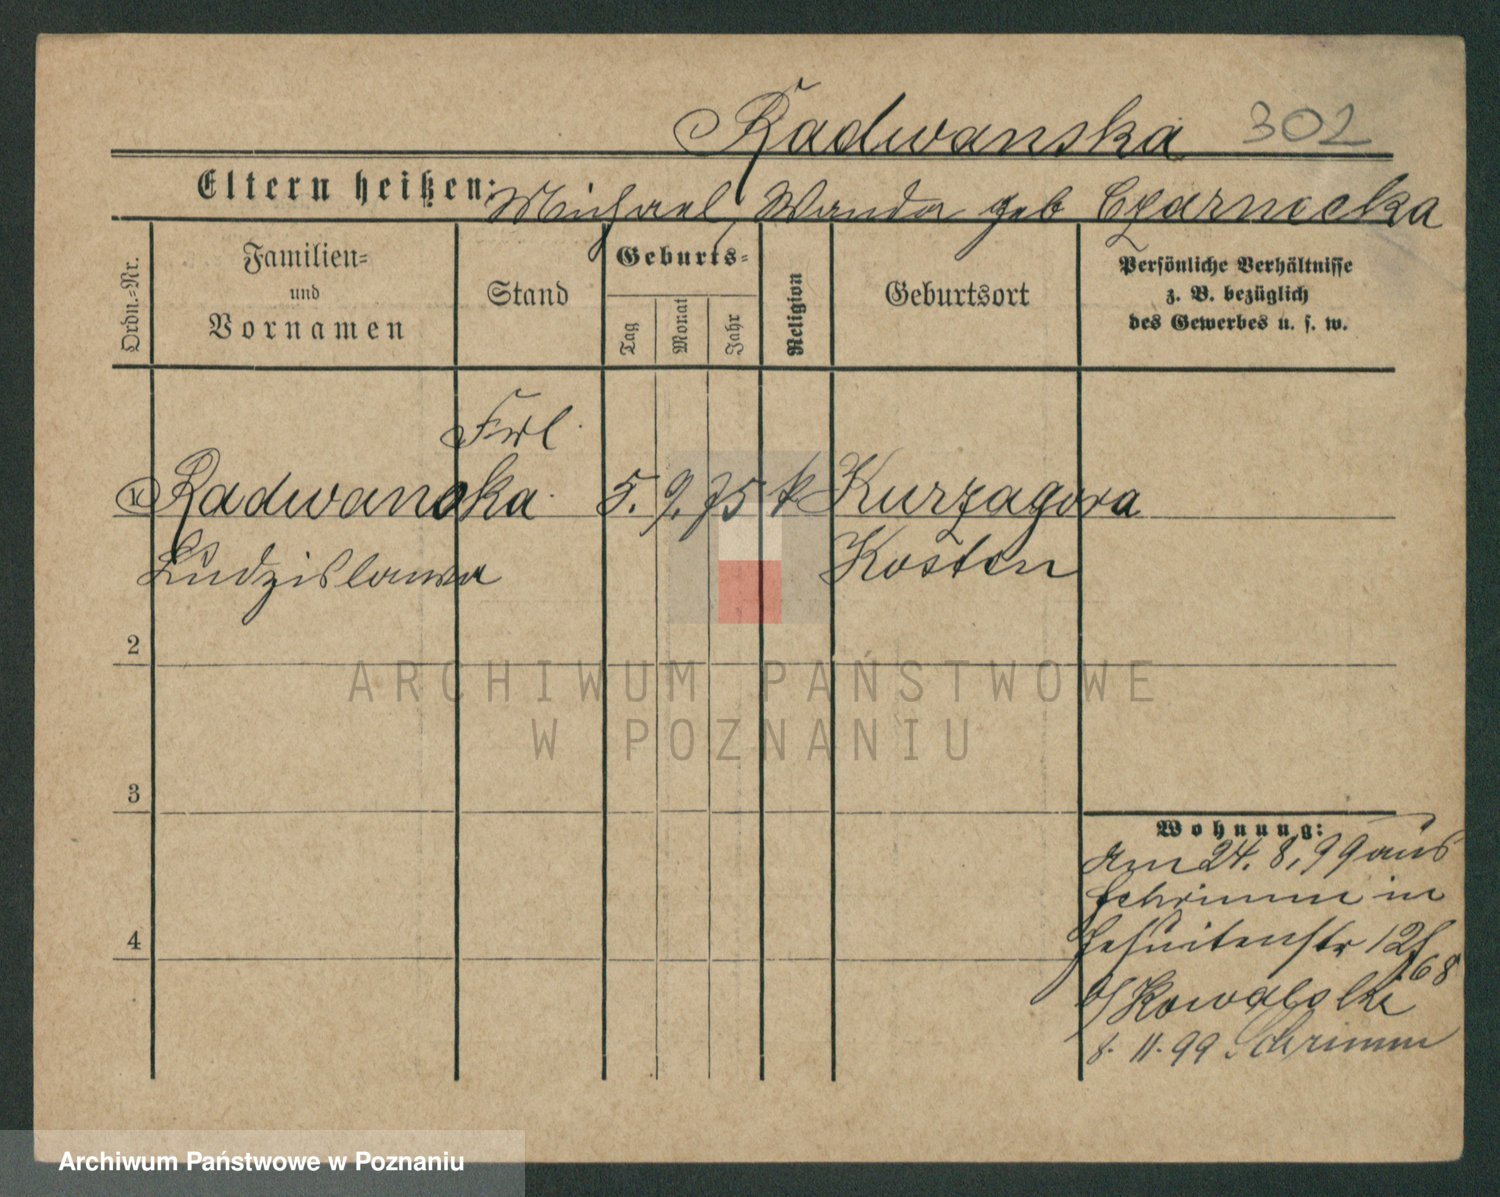 Radwanska 302
Eltern heißen: Michael, Wanda geb Czarnecka
Ordn.-Nr.
Familien-
und
Vornamen
Stand
Geburts-
Tag
Monat
Jahr
Religion
Geburtsort
Persönliche Verhältnisse
z. B. bezüglich
des Gewerbes u. s. w.
Frl.
1 Radwanska 5. 9. 75 k Kurzagora
Ludzislawa Kosten
2
3
4
Wohnung:
Am 24. 8. 99 aus
Schrimm in
Jesuitenstr 12
b/ Kowalski
8. 11. 99 Schrimm
ARCHIWUM PAŃSTWOWE
W POZNANIU
Archiwum Państwowe w Poznaniu